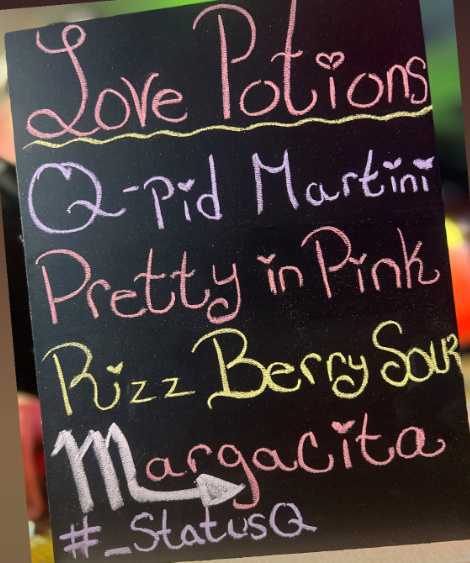 Love Potions
Q-pid Martini
Pretty in Pink
Rizz Berry Sour
Margacita
#_StatusQ